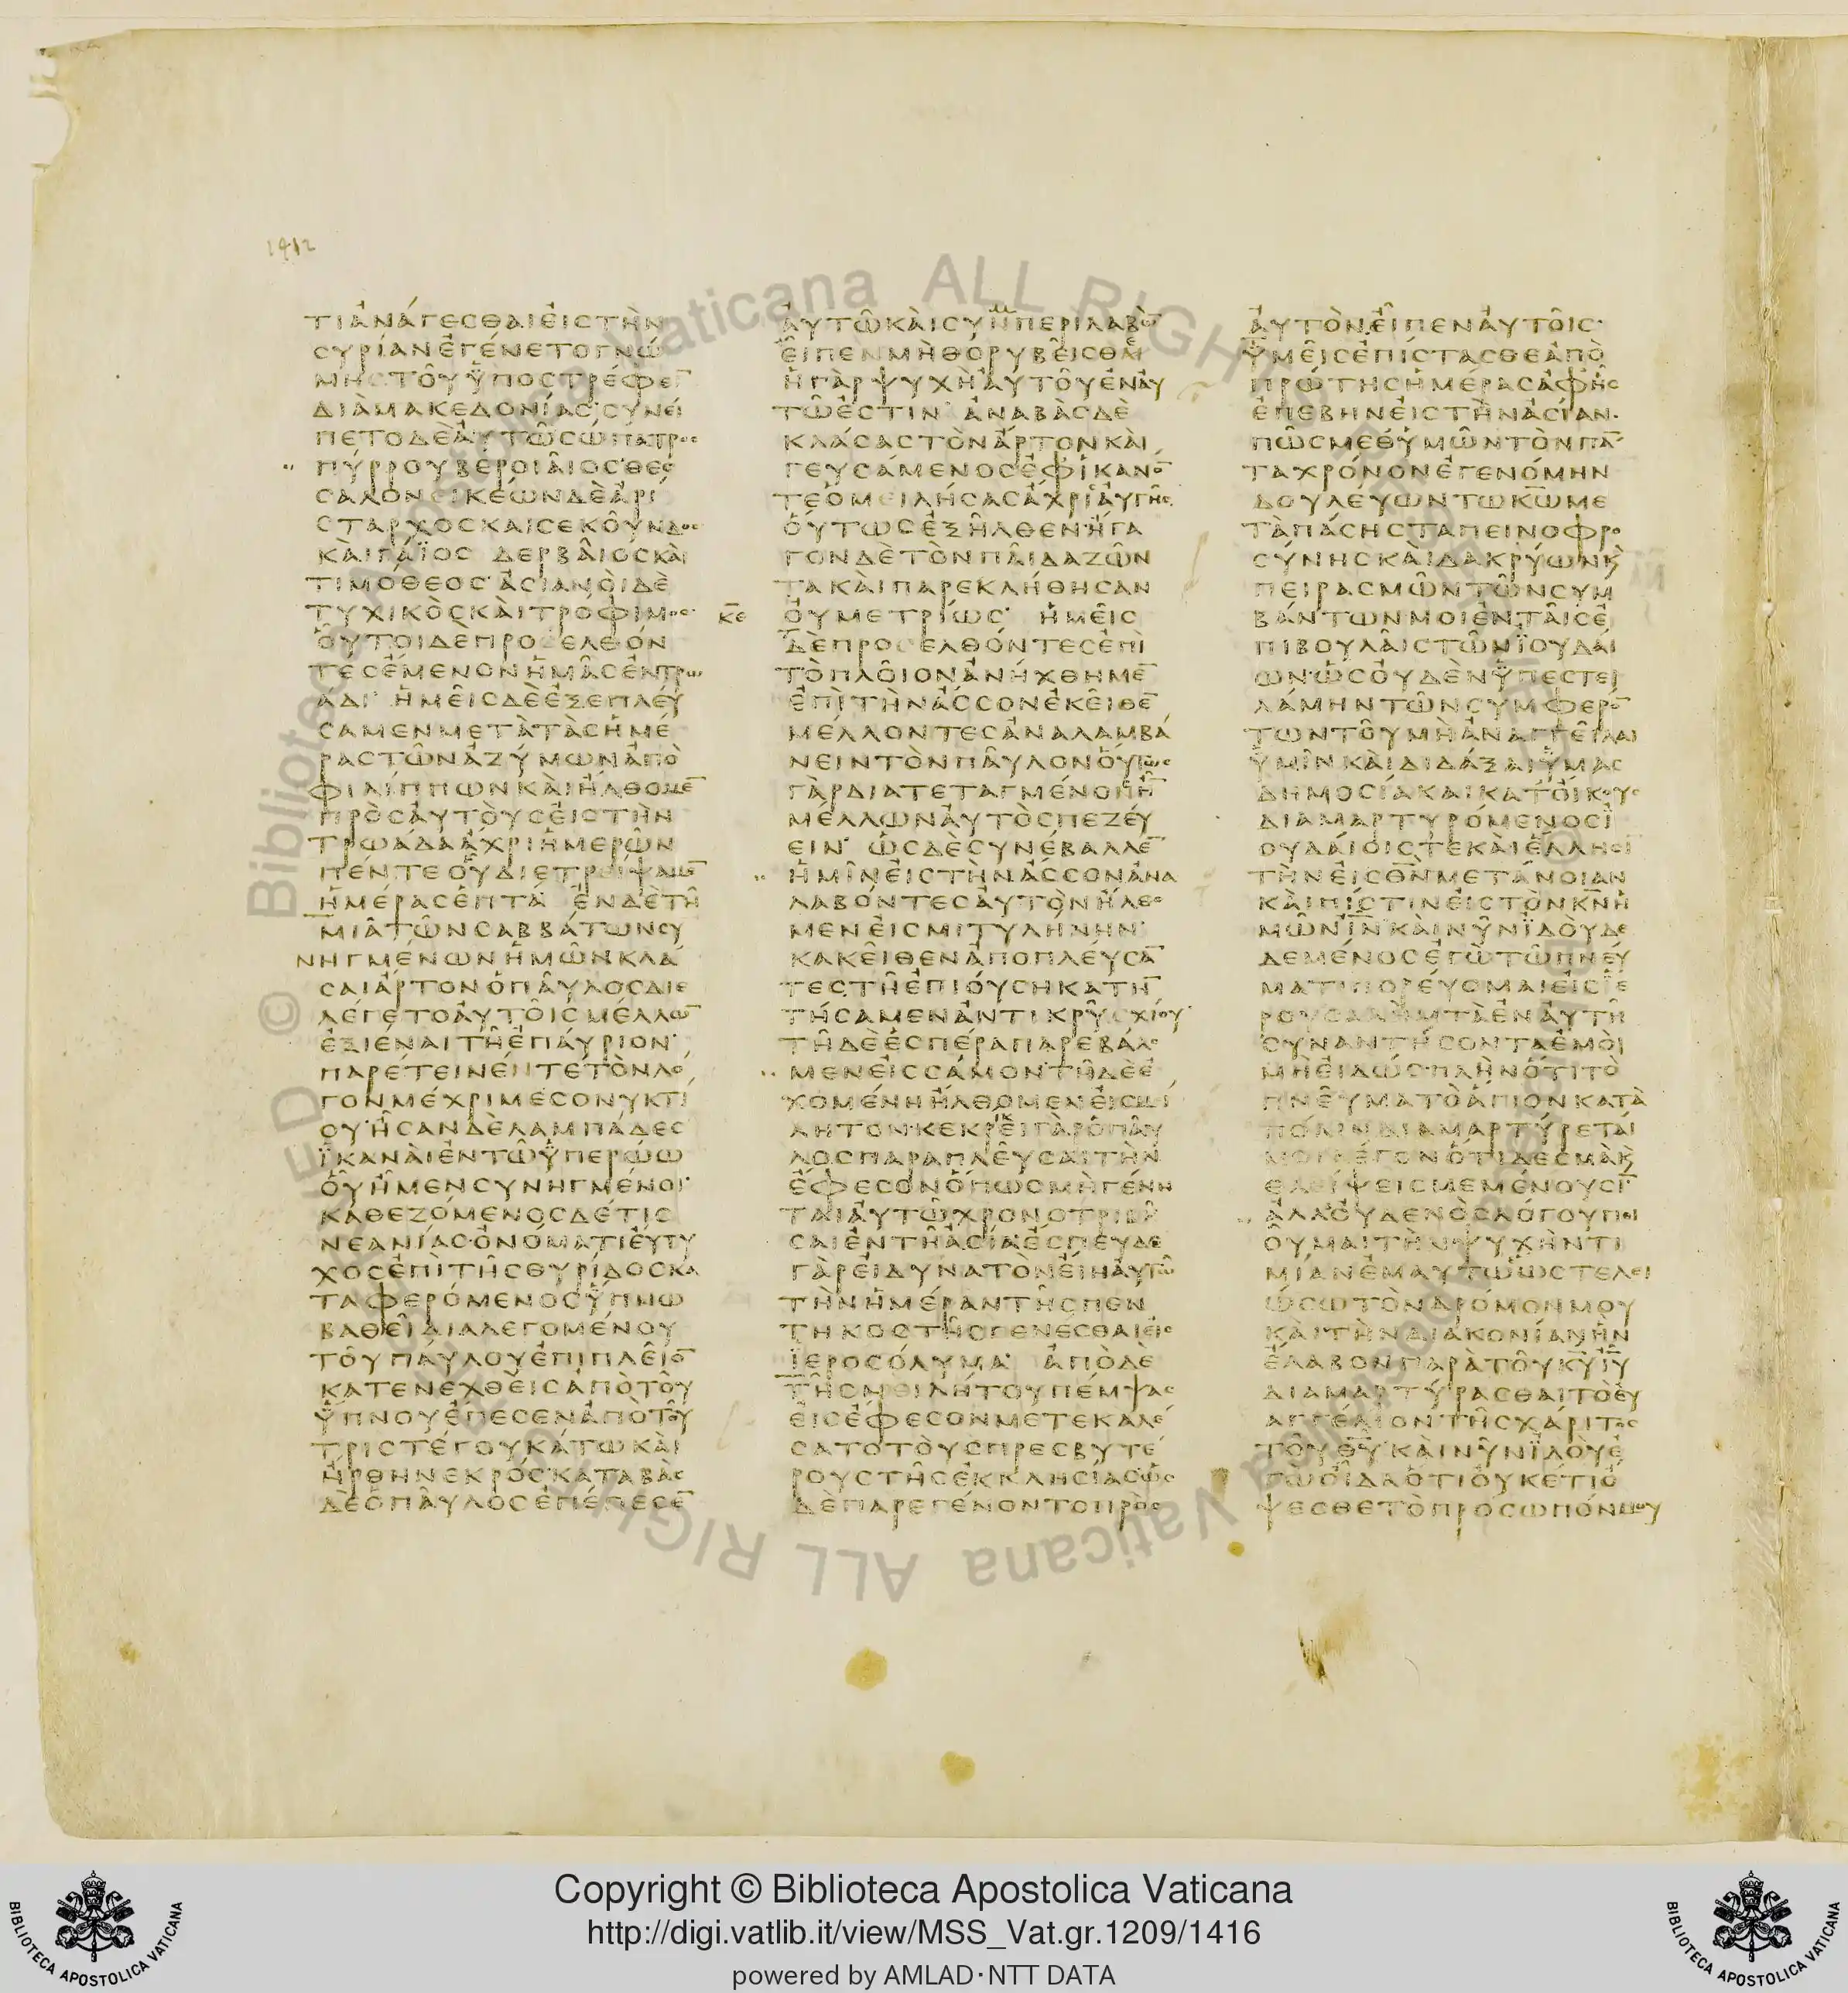 1412
ΤΙἈΝΆΓΕϹΘΑΙΕἸϹΤῊΝ
ϹΥΡΊΑΝἘΓΈΝΕΤΟΓΝΏ
ΜΗϹΤΟΥ͂ὙΠΟϹΤΡΈΦΕΙ̅
ΔΙᾺΜΑΚΕΔΟΝΊΑϹ·ϹΥΝΕΊ
ΠΕΤΟΔῈἈΥΤΩ͂ϹΏΠΑΤΡΟϹ
ΠΎΡΡΟΥΒΕΡΟΙΑ͂ΙΟϹ·ΘΕϹ
ϹΑΛΟΝΕΙΚΈΩΝΔῈἈΡΊ
ϹΤΑΡΧΟϹΚΑΙϹΕΚΟΥ͂ΝΔΟϹ
ΚᾺΙΓΆΪΟϹ ΔΕΡΒΑ͂ΙΟϹΚᾺΙ
ΤΙΜΌΘΕΟϹ· ἈϹΙΑΝῸΙΔῈ
ΤΥΧΙΚῸϹΚᾺΙΤΡΟΦΙΜΟϹ·
ὉΥ͂ΤΟΙΔῈΠΡΟϹΕΛΘΌΝ
ΤΕϹἜΜΕΝΟΝἩΜΑ͂ϹἘΝΤΡΩ
ΆΔΙ· ἩΜΕΙ͂ϹΔῈἘΞΕΠΛΕΎ
ϹΑΜΕΝΜΕΤᾺΤᾺϹἩΜΈ
ΡΑϹΤΩ͂ΝἈΖΎΜΩΝἈΠῸ
ΦΙΛΊΠΠΩΝΚᾺΙἨΛΘΟΜΕ̅
ΠΡῸϹἈΥΤῸΥϹἘΙϹΤῊΝ
ΤΡΩΆΔΑἌΧΡΙἩΜΕΡΩ͂Ν
ΠΈΝΤΕΟὙΔΙΕΤΡΕΊΨΑΜΕ̅
ἩΜΈΡΑϹἙΠΤΆ· ἘΝΔῈΤΗ͂
ΜΙΑ͂ΤΩ͂ΝϹΑΒΒΆΤΩΝϹΥ
ΝΗΓΜΈΝΩΝἩΜΩ͂ΝΚΛΆ
ϹΑΙἌΡΤΟΝὉΠΑ͂ΥΛΟϹΔΙΕ
ΛΈΓΕΤΟἈΥΤΟΙ͂ϹΜΈΛΛΩ̅
ἘΞΙΈΝΑΙΤΗ͂ἘΠΆΥΡΙΟΝ·
ΠΑΡΈΤΕΙΝΈΝΤΕΤῸΝΛΟ
ΓΟΝΜΈΧΡΙΜΕϹΟΝΥΚΤΙ
ΟΥ·ἮϹΑΝΔῈΛΑΜΠΆΔΕϹ
ἹΚΑΝᾺΙἘΝΤΩ͂ὙΠΕΡΏΩ
ὉΥ͂ἮΜΕΝϹΥΝΗΓΜΈΝΟΙ·
ΚΑΘΕΖΌΜΕΝΟϹΔΈΤΙϹ
ΝΕΑΝΊΑϹ·ὈΝΌΜΑΤΙἘΥΤΥ
ΧΟϹἘΠῚΤΗ͂ϹΘΥΡΊΔΟϹΚΑ
ΤΑΦΕΡΌΜΕΝΟϹὝΠΝΩ
ΒΑΘΕΙ͂ΔΙΑΛΕΓΟΜΈΝΟΥ
ΤΟΥ͂ΠΑΎΛΟΥἘΠΙΠΛΕΙ͂Ο̅
ΚΑΤΕΝΕΧΘῈΙϹἈΠῸΤΟΥ͂
ὝΠΝΟΥἜΠΕϹΕΝἈΠῸΤΟΥ͂
ΤΡΙϹΤΈΓΟΥΚΆΤΩΚᾺΙ
ἬΡΘΗΝΕΚΡΌϹ·ΚΑΤΑΒᾺϹ
ΔῈὉΠΑ͂ΥΛΟϹἘΠΈΠΕϹΕ̅
ἈΥΤΩ͂ΚᾺΙϹΥΝΠΕΡΙΛΑΒῺ̅
ἘΙ͂ΠΕΝΜῊΘΟΡΥΒΕΙ͂ϹΘΑΙ
ἩΓᾺΡΨΥΧῊἈΥΤΟΥ͂ἘΝἈΥ
ΤΩ͂ἘϹΤΙΝ· ἈΝΑΒᾺϹΔῈ
ΚΛΆϹΑϹΤῸΝἌΡΤΟΝΚᾺΙ
ΓΕΥϹΆΜΕΝΟϹἘΦἹΚΑΝΟ̅
ΤΕὉΜΕΙΛΉϹΑϹἌΧΡΙἈΥΓΗ͂Ϲ
ὍΥΤΩϹἘΞΗ͂ΛΘΕΝ·ἬΓΑ
ΓΟΝΔῈΤῸΝΠΑ͂ΙΔΑΖΩ͂Ν
ΤΑΚᾺΙΠΑΡΕΚΛΉΘΗϹΑΝ
ΚΕ̅
ὈΥΜΕΤΡΊΩϹ· ἩΜΕΙ͂Ϲ
ΔῈΠΡΟϹΕΛΘΌΝΤΕϹἘΠῚ
ΤῸΠΛΟΙ͂ΟΝἈΝΉΧΘΗΜΕ̅
ἘΠῚΤῊΝἌϹϹΟΝἘΚΕΙ͂ΘΕ̅
ΜΈΛΛΟΝΤΕϹἈΝΑΛΑΜΒΆ
ΝΕΙΝΤῸΝΠΑΥ͂ΛΟΝΟὝΤΩϹ
ΓᾺΡΔΙΑΤΕΤΑΓΜΈΝΟϹΗ̅
ΜΈΛΛΩΝἈΥΤῸϹΠΕΖΕΎ
ΕΙΝ· ὩϹΔῈϹΥΝΈΒΑΛΛΕ̅
ἩΜΙ͂ΝΕἸϹΤῊΝἌϹϹΟΝἈΝΑ
ΛΑΒΌΝΤΕϹἈΥΤῸΝἬΛΘΟ
ΜΕΝἘΙϹΜΙΤΥΛΉΝΗΝ·
ΚΑΚΕΙ͂ΘΕΝἈΠΟΠΛΕΎϹΑ̅
ΤΕϹΤΗ͂ἘΠΙΟΎϹΗΚΑΤΗ̅
ΤΉϹΑΜΕΝἌΝΤΙΚΡΥϹΧΊΟΥ
ΤΗ͂ΔῈἙϹΠΈΡΑΠΑΡΕΒΆΛΟ
ΜΕΝΕἸϹϹΆΜΟΝ·ΤΗ͂ΔῈἘ
ΧΟΜΈΝΗἨΛΘΟΜΕΝΕἸϹΜΙ
ΛΗΤΟΝ·ΚΕΚΡΊΚΕΙΓᾺΡὉΠΑΥ
ΛΟϹΠΑΡΑΠΛΕΥ͂ϹΑΙΤῊΝ
ἜΦΕϹΟΝὍΠΩϹΜῊΓΈΝΗ
ΤΑΙἈΥΤΩ͂ΧΡΟΝΟΤΡΙΒΗ͂
ϹΑΙἘΝΤΗ͂ἈϹΊΑἜϹΠΕΥΔΕ
ΓᾺΡΕἸΔΥΝΑΤῸΝΕἼΗἈΥΤΩ
ΤῊΝἩΜΈΡΑΝΤΗ͂ϹΠΕΝ
ΤΗΚΟϹΤΗ͂ϹΓΕΝΈϹΘΑΙΕἸϹ
ἹΕΡΟϹΌΛΥΜΑ· ἈΠῸΔῈ
ΤΗ͂ϹΜΕΙΛΉΤΟΥΠΈΜΨΑϹ
ΕἸϹἜΦΕϹΟΝΜΕΤΕΚΑΛΈ
ϹΑΤΟΤΟῪϹΠΡΕϹΒΥΤΈ
ΡΟΥϹΤΗ͂ϹἘΚΚΛΗϹΊΑϹ·ὩϹ
ΔῈΠΑΡΕΓΈΝΟΝΤΟΠΡῸϹ
ἈΥΤῸΝ.ΕἾΠΕΝἈΥΤΟΙ͂Ϲ·
ὙΜΕΙ͂ϹἘΠΊϹΤΑϹΘΕἈΠῸ
ΠΡΏΤΗϹἩΜΈΡΑϹἈΦΗ͂Ϲ
ἘΠΈΒΗΝΕἸϹΤῊΝἈϹΊΑΝ·
ΠΩ͂ϹΜΕΘΥΜΩ͂ΝΤῸΝΠΆ̅
ΤΑΧΡΌΝΟΝἘΓΕΝΌΜΗΝ
ΔΟΥΛΕΎΩΝΤΩΚ̅Ω̅ΜΕ
ΤᾺΠΆϹΗϹΤΑΠΕΙΝΟΦΡΟ
ϹΎΝΗϹΚᾺΙΔΑΚΡΎΩΝΚ
ΠΕΙΡΑϹΜΩ͂ΝΤΩ͂ΝϹΥΜ
ΒΆΝΤΩΝΜΟΙἘΝΤΑΙ͂ϹἘ
ΠΙΒΟΥΛΑΙ͂ϹΤΩ͂ΝΪΟΥΔΑΊ
ΩΝ·ὩϹΟΥΔῈΝὙΠΕϹΤΕΙ
ΛΆΜΗΝΤΩ͂ΝϹΥΜΦΕΡΌ̅
ΤΩΝΤΟΥ͂ΜῊἈΝΑΓΓΕΙ͂ΛΑΙ
ὙΜΙ͂ΝΚᾺΙΔΙΔΆΞΑΙὙΜΑϹ
ΔΗΜΟϹΊΑΚΑΙΚΑΤΟἼΚΟΥϹ
ΔΙΑΜΑΡΤΥΡΌΜΕΝΟϹΪ
ΟΥΔΑΊΟΙϹΤΕΚᾺΙἝΛΛΗϹΙ
ΤῊΝΕἸϹΘ̅Ν̅ΜΕΤΆΝΟΙΑΝ
ΚᾺΙΠΊϹΤΙΝΕἸϹΤῸΝΚ̅Ν̅Ἡ
ΜΩ͂ΝΙ̅Ν̅ΚᾺΙΝΥ͂ΝἸΔΟῪΔΕ
ΔΕΜΈΝΟϹἘΓῺΤΩ͂ΠΝΕΎ
ΜΑΤΙΠΟΡΕΎΟΜΑΙΕἸϹΪΕ
ΡΟΥϹΑΛΗΜΤᾺἘΝἈΥΤΗ͂
ϹΥΝΑΝΤΉϹΟΝΤΑἘΜῸΙ
ΜῊΕἸΔΏϹ·ΠΛῊΝὍΤΙΤῸ
ΠΝΕΥ͂ΜΑΤῸἍΓΙΟΝΚΑΤᾺ
ΠΌΛΙΝΔΙΑΜΑΡΤΎΡΕΤΑΊ
ΜΟΙΛΈΓΟΝὍΤΙΔΕϹΜᾺΚ
ΘΛΊΨΕΙϹΜΕΜΈΝΟΥϹΙ̅
ἈΛΛΟΥΔΕΝῸϹΛΌΓΟΥΠΟΙ
ΟΥ͂ΜΑΙΤῊΝΨΥΧῊΝΤΙ
ΜΊΑΝἘΜΑΥΤΩ͂ὩϹΤΕΛΕΙ
ΏϹΩΤῸΝΔΡΌΜΟΝΜΟΥ
ΚᾺΙΤῊΝΔΙΑΚΟΝΊΑΝἫΝ
ἜΛΑΒΟΝΠΑΡᾺΤΟΥ͂Κ̅Υ̅Ι̅Υ̅
ΔΙΑΜΑΡΤΎΡΑϹΘΑΙΤῸἘΥ
ΑΓΓΈΛΙΟΝΤΗ͂ϹΧΆΡΙΤΟϹ
ΤΟΥ͂Θ̅Υ̅·ΚᾺΙΝΥ͂ΝἸΔΟΥἘ
ΓῺΟἾΔΑὍΤΙΟὐΚΈΤΙὌ
ΨΕϹΘΕΤῸΠΡΌϹΩΠΌΝΜΟΥ
Copyright © Biblioteca Apostolica Vaticana
http://digi.vatlib.it/view/MSS_Vat.gr.1209/1416
powered by AMLAD·NTT DATA
BIBLIOTECA APOSTOLICA VATICANA
BIBLIOTECA APOSTOLICA VATICANA